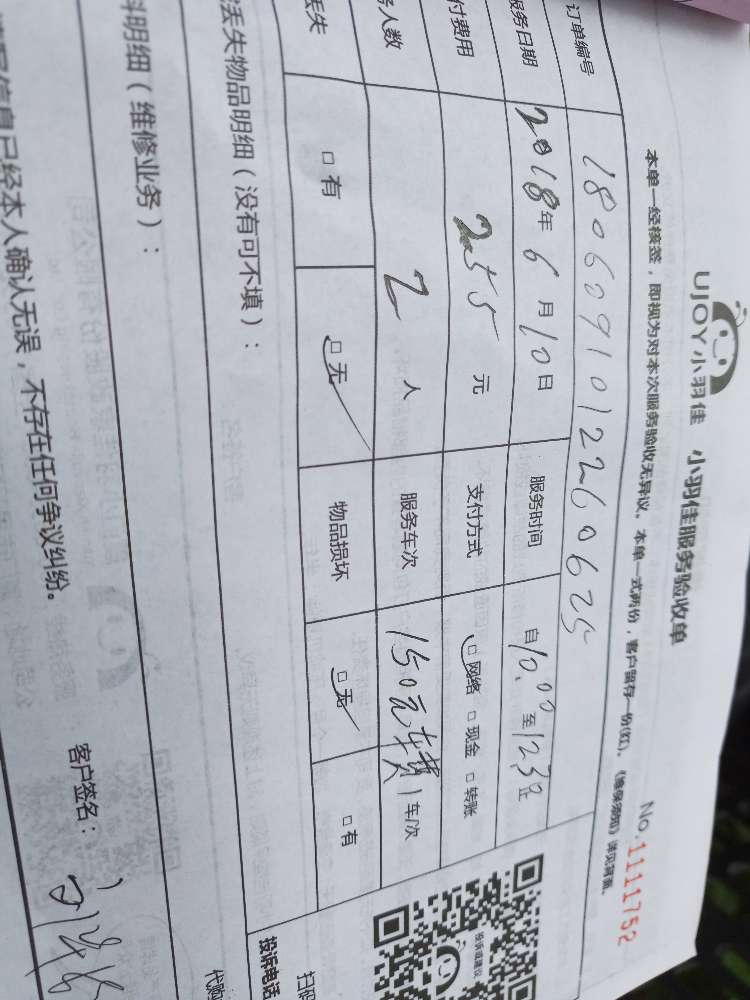 UJOY小羽佳 小羽佳服务验收单
No.1111752
本单一经核签，即视为对本次服务验收无异议。本单一式两份，客户留存一份(红)。《维保须知》详见背面。
订单编号 1806091012260625
服务日期 2018年6月10日 服务时间 自10:00至12:30
付费用 255元 支付方式 □网络 □现金 □转账
务人数 2人 服务车次 150元车费1车/次
丢失 □有 □无 物品损坏 □无 □有
丢失物品明细（没有可不填）：
料明细（维修业务）：
信息已经本人确认无误，不存在任何争议纠纷。
客户签名：
投诉或建议
扫码
投诉电话
代购